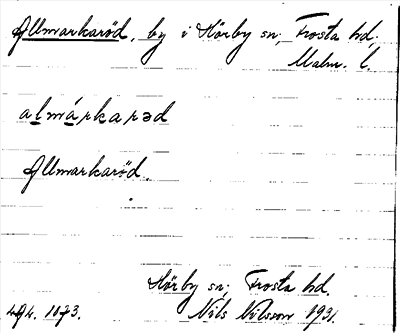 Allmarkaröd, by i Hörby sn, Frosta hd,
Malm. l.
almárkarəd
Allmarkaröd.
Hörby sn. Frosta hd.
Nils Nilsson 1931.